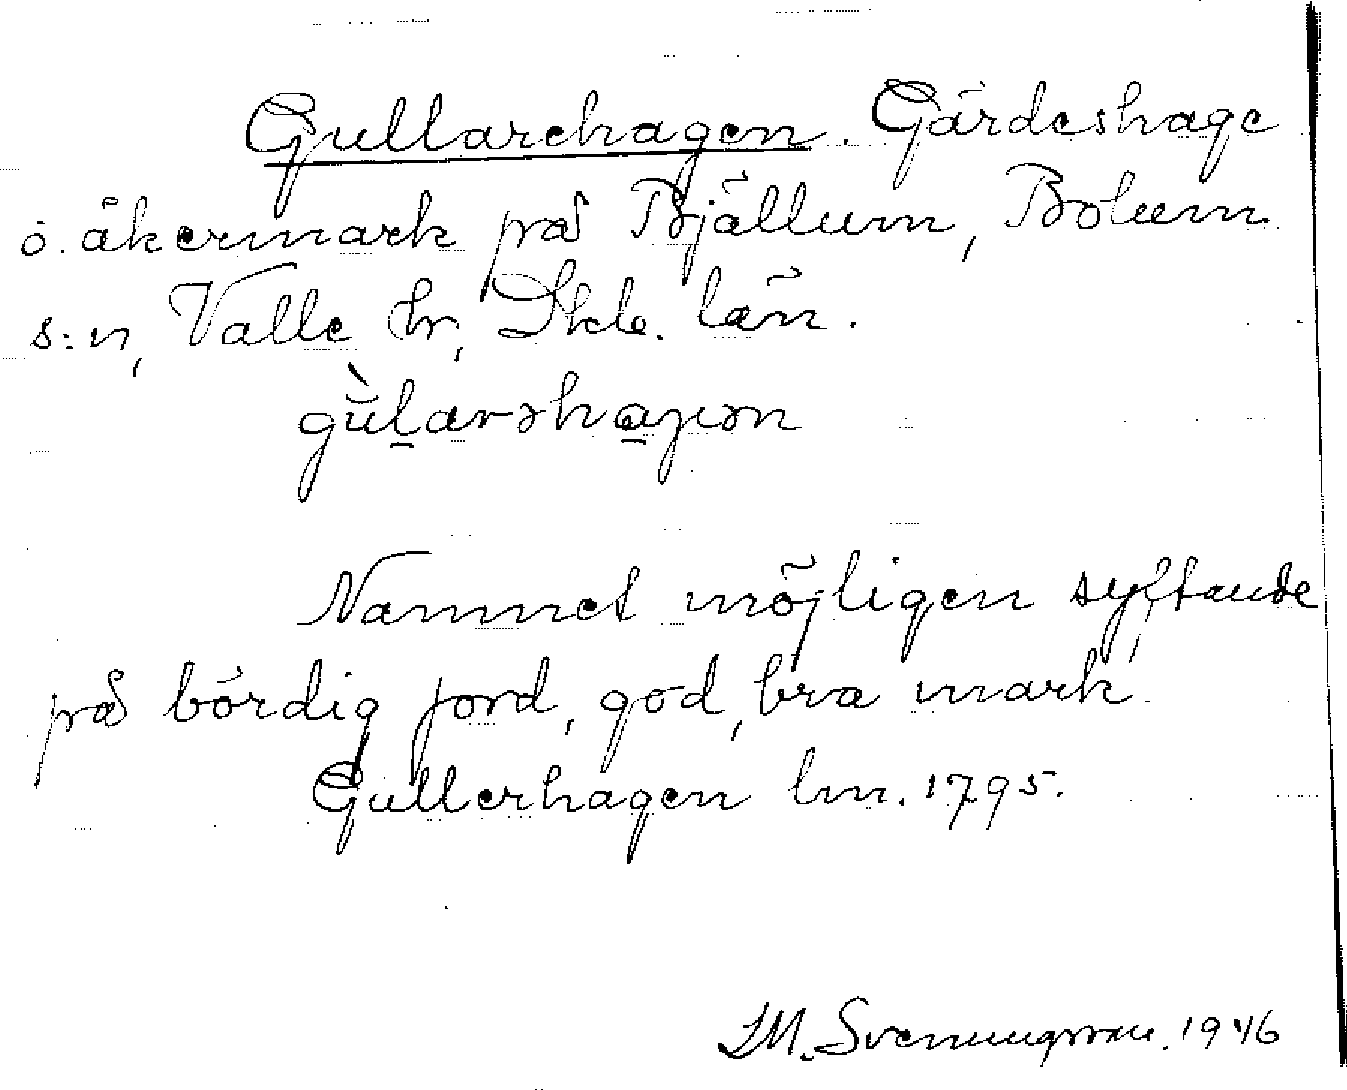 Gullarehagen. Gärdeshage
o. åkermark på Bjällum, Bolum
s:n, Valle hr, Skb. län.
gùlarəhagən
Namnet möjligen syftande
på bördig jord, god, bra mark.
Gullerhagen lm. 1795.
I.M. Svenungsson. 1946